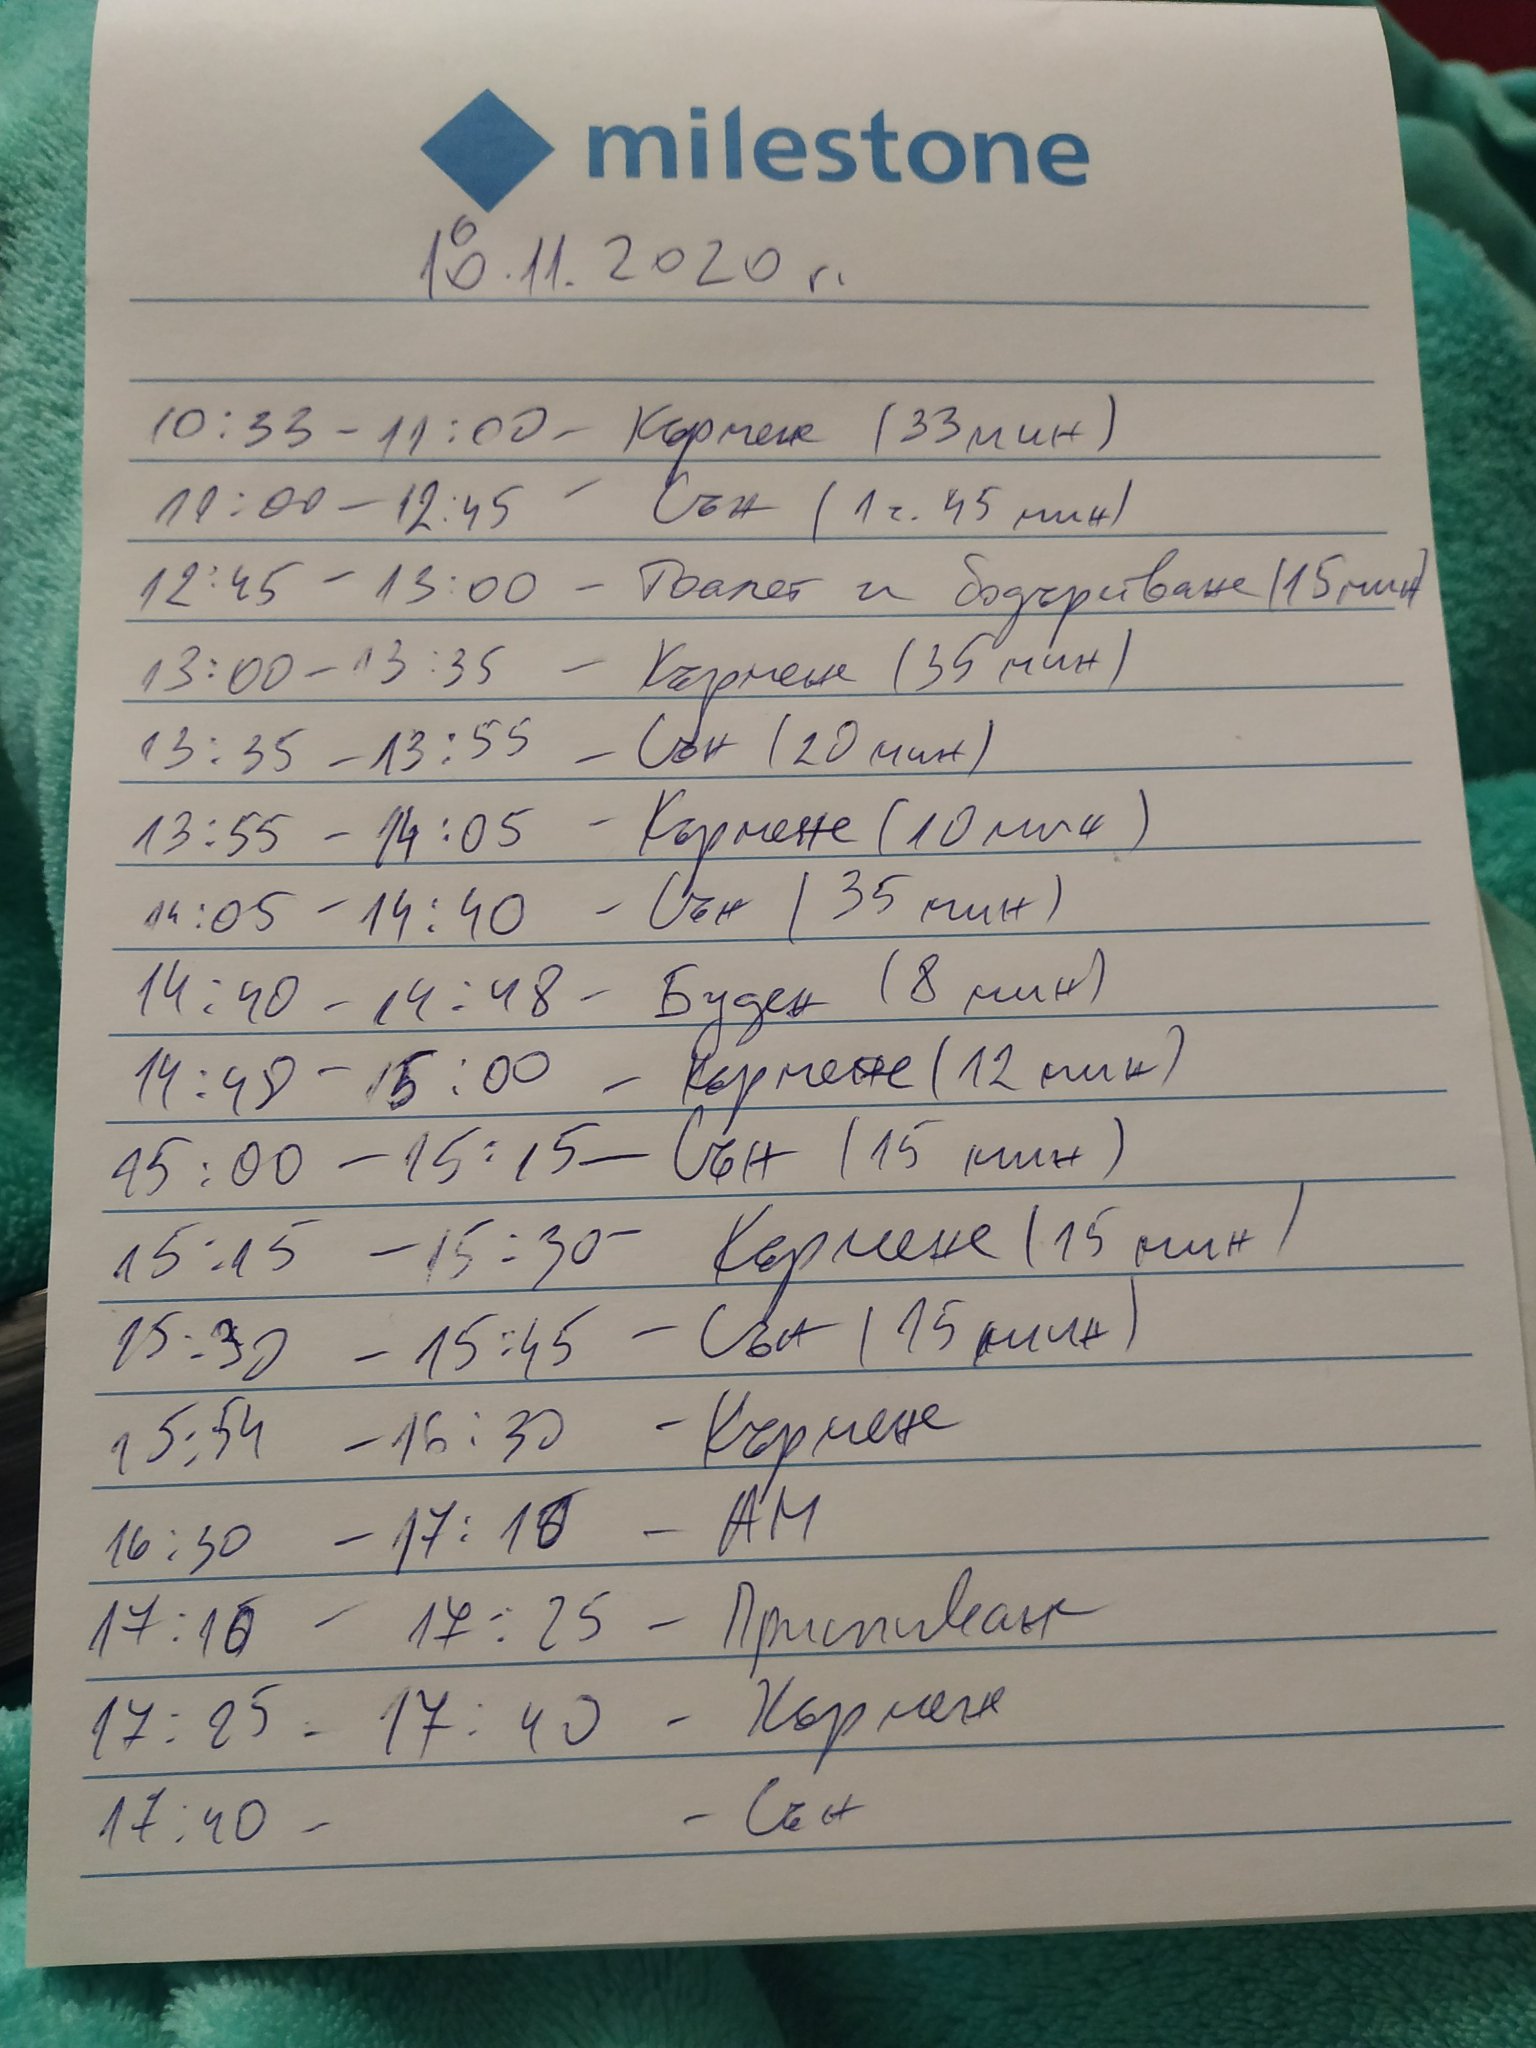 milestone
18.11.2020 г.
10:33 - 11:00 - Кърмене (33 мин)
11:00 - 12:45 - Сън (1 ч. 45 мин)
12:45 - 13:00 - Тоалет и бодърстване (15 мин)
13:00 - 13:35 - Кърмене (35 мин)
13:35 - 13:55 - Сън (20 мин)
13:55 - 14:05 - Кърмене (10 мин)
14:05 - 14:40 - Сън (35 мин)
14:40 - 14:48 - Буден (8 мин)
14:48 - 15:00 - Кърмене (12 мин)
15:00 - 15:15 - Сън (15 мин)
15:15 - 15:30 - Кърмене (15 мин)
15:30 - 15:45 - Сън (15 мин)
15:54 - 16:30 - Кърмене
16:30 - 17:16 - АМ
17:16 - 17:25 - Приспиване
17:25 - 17:40 - Кърмене
17:40 - - Сън